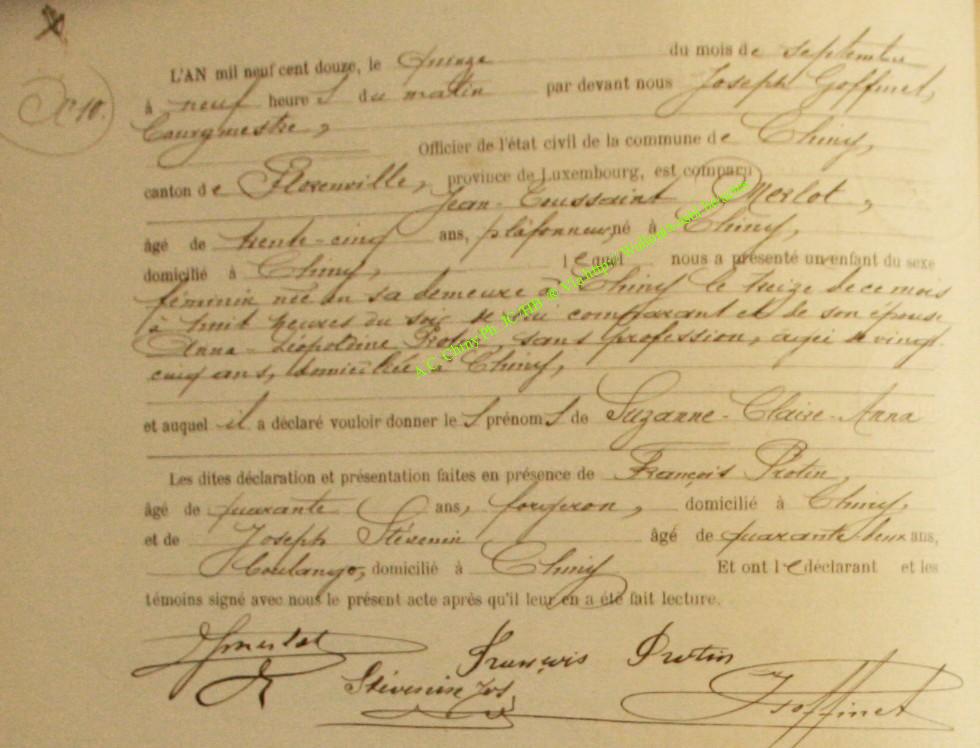 N° 10.
L'AN mil neuf cent douze, le quinze du mois de septembre
à neuf heures du matin par devant nous Joseph Goffinet,
bourgmestre,
Officier de l'état civil de la commune de Chiny,
canton de Florenville, province de Luxembourg, est comparu
Jean-Toussaint Merlot,
âgé de trente-cinq ans, plafonneur, né à Chiny,
domicilié à Chiny, lequel nous a présenté un enfant du sexe
féminin née en sa demeure à Chiny le treize de ce mois
à huit heures du soir de lui comparant et de son épouse
Anna-Léopoldine sans profession, agée de vingt-
cinq ans, domiciliée à Chiny,
et auquel il a déclaré vouloir donner les prénoms de Suzanne-Claire-Anna
Les dites déclaration et présentation faites en présence de François Protin,
âgé de quarante ans, forgeron, domicilié à Chiny,
et de Joseph Stévenin âgé de quarante-deux ans,
boulanger, domicilié à Chiny Et ont le déclarant et les
témoins signé avec nous le présent acte après qu'il leur en a été fait lecture.
JMerlot François Protin
Stévenin Jos JGoffinet
A.C. Chiny Ph. JC /HB ®